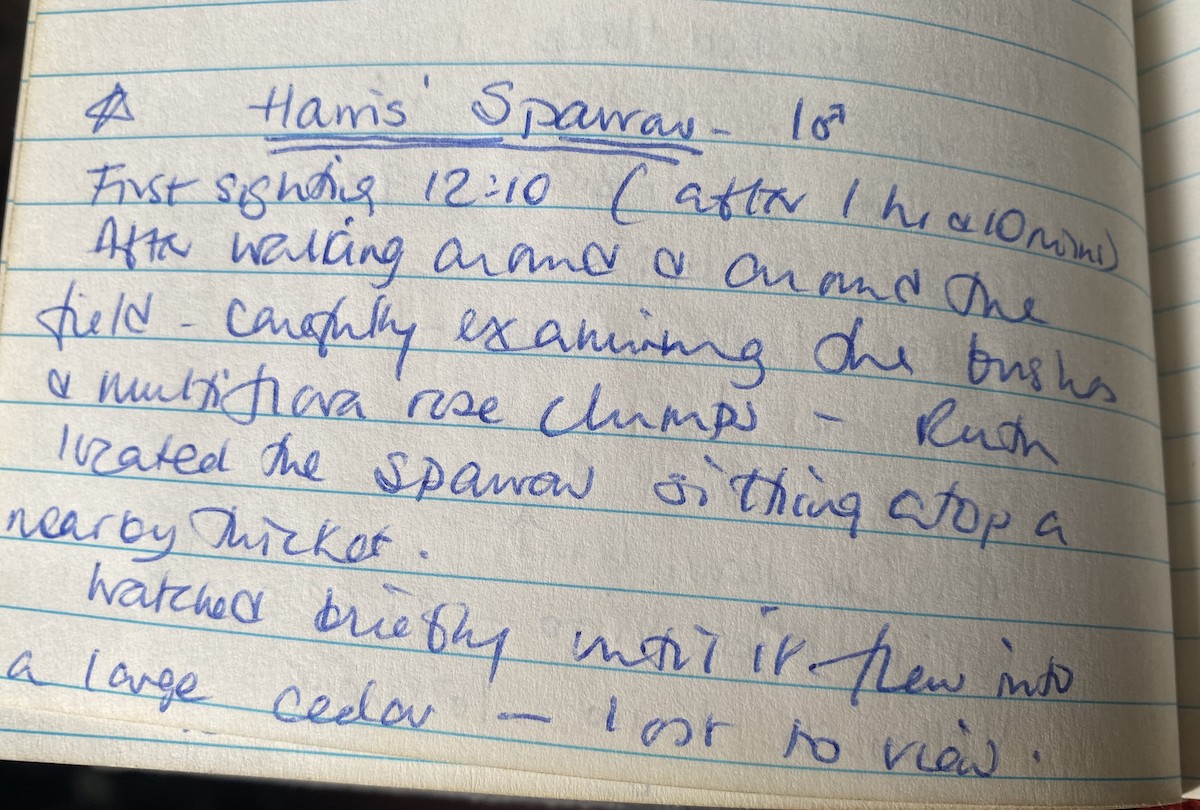 ☆ Harris' Sparrow - 1♂
First sighting 12:10 (after 1 hr & 10 mins)
After walking around & around the
field - carefully examining the bushes
& multiflora rose clumps - Ruth
located the sparrow sitting atop a
nearby thicket.
Watched briefly until it flew into
a large cedar — lost to view.